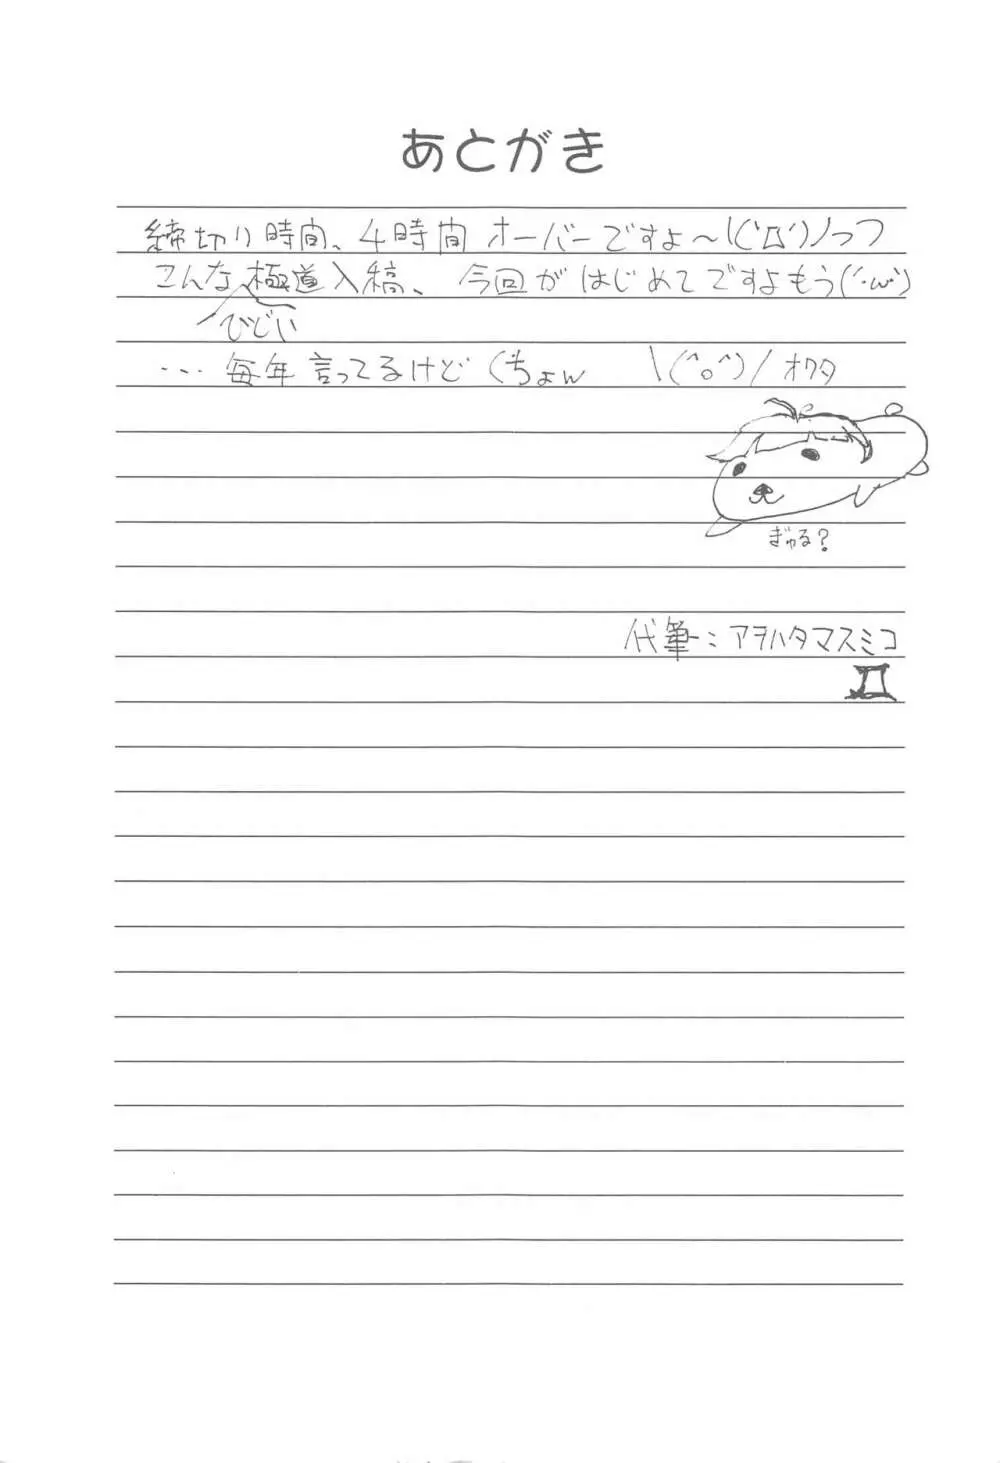 あとがき
締切り時間、4時間 オーバーですよ～\(ﾟДﾟ)ﾉつつ
こんな極道入稿、今回がはじめてですよもう(´･ω･)
ひどい
…毎年言ってるけど くちょん \(^o^)/オワタ
ぎゅる?
代筆:アヲハタマスミコ